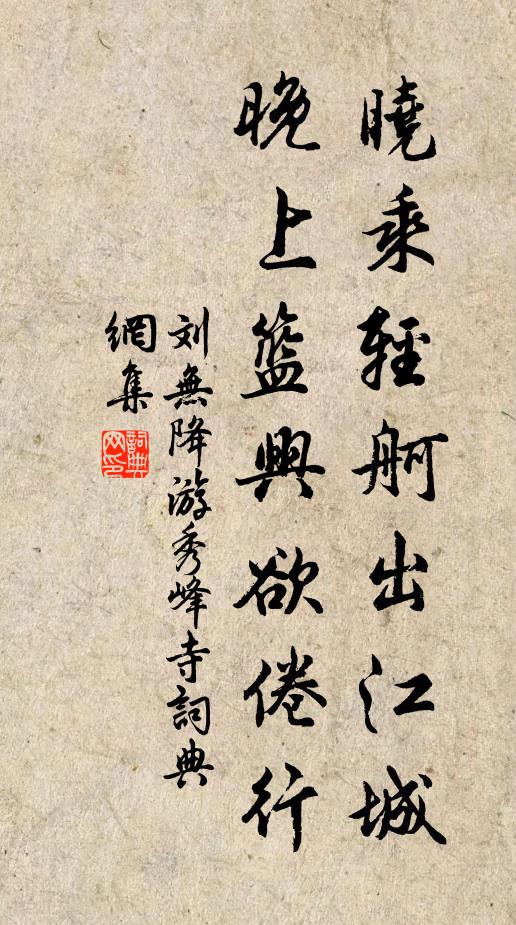 曉乘輕舸出江城
晚上籃興欲倦行
刘無降游秀峰寺詞典
網集
詞典
网印